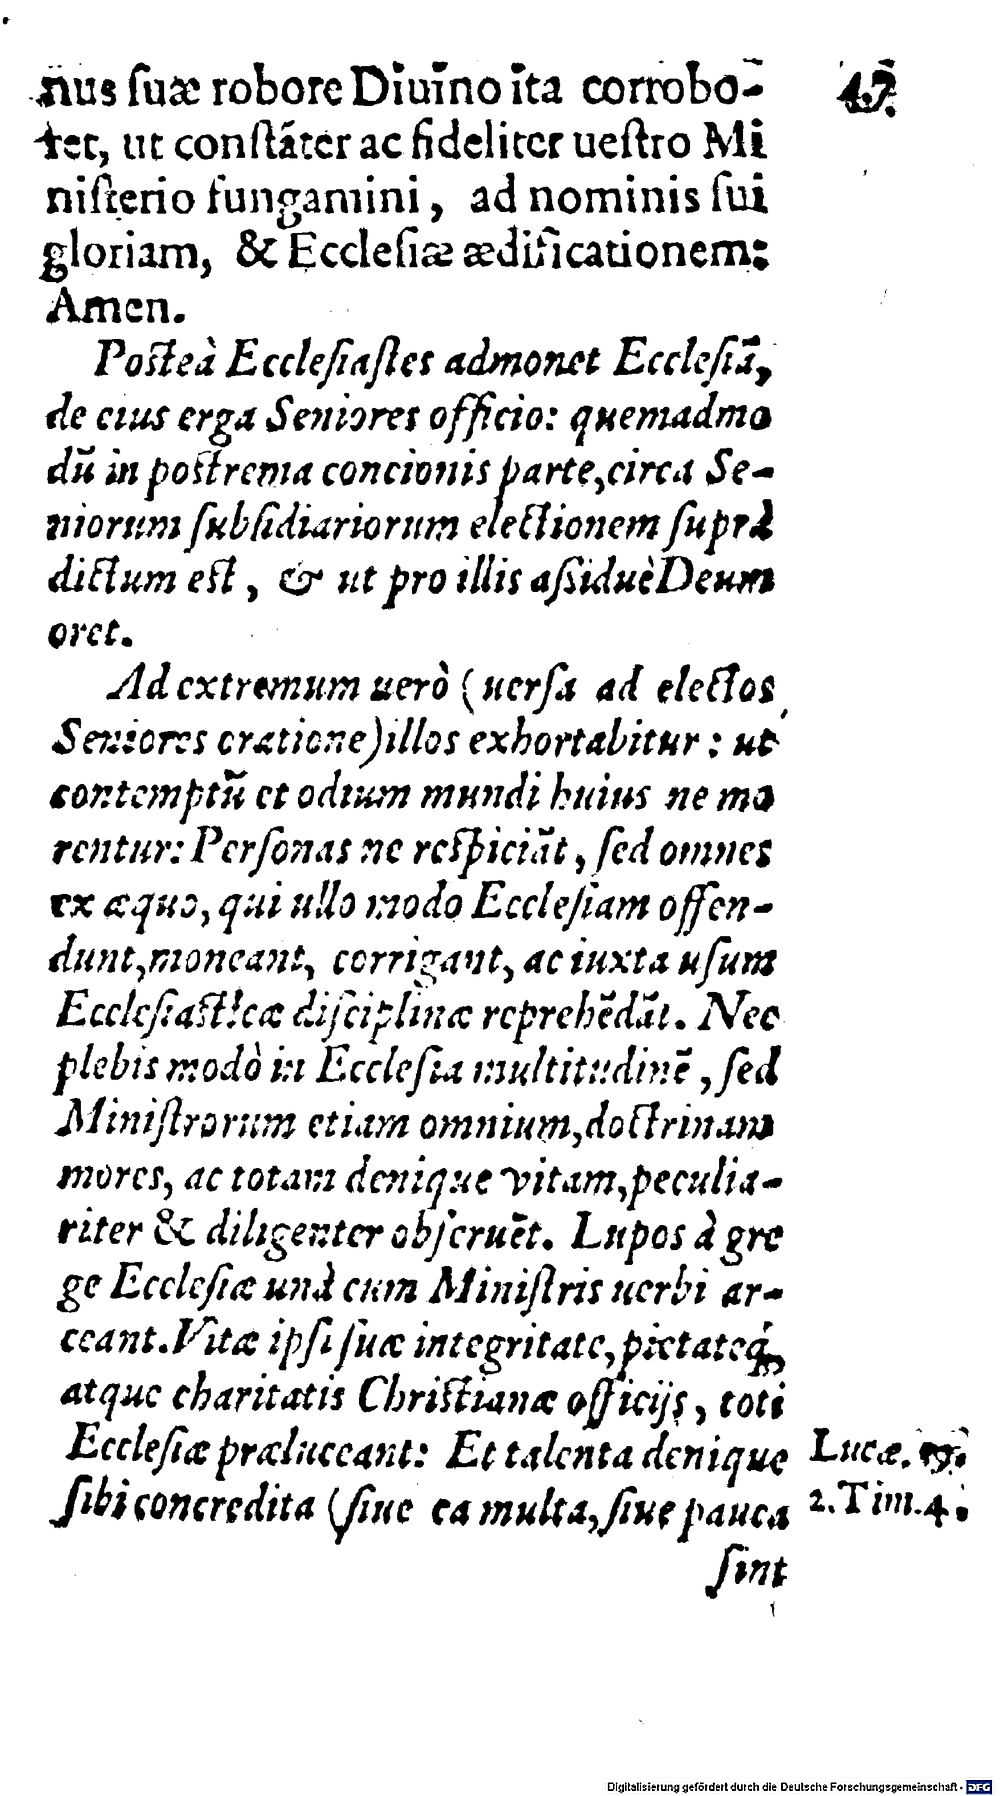 nus suæ robore Diuīno ita corrobo-
47.
ret, ut constāter ac fideliter uestro Mi
nisterio fungamini, ad nominis sui
gloriam, & Ecclesiæ ædificationem:
Amen.
Posteà Ecclesiastes admonet Ecclesiā,
de eius erga Seniores officio: quemadmo
dū in postrema concionis parte, circa Se-
niorum subsidiariorum electionem suprà
dictum est, & ut pro illis assiduè Deum
oret.
Ad extremum uerò (uersa ad electos
Seniores oratione) illos exhortabitur: ut
contemptū et odium mundi huius ne mo
rentur: Personas ne respiciāt, sed omnes
ex æquo, qui ullo modo Ecclesiam offen-
dunt, moneant, corrigant, ac iuxta usum
Ecclesiasticæ disciplinæ reprehēdāt. Nec
plebis modò in Ecclesia multitudinē, sed
Ministrorum etiam omnium, doctrinam
mores, ac totam denique vitam, peculia-
riter & diligenter obseruēt. Lupos à gre
ge Ecclesiæ unà cum Ministris uerbi ar-
ceant. Vitæ ipsi suæ integritate, pietateq́;
atque charitatis Christianæ officijs, toti
Ecclesiæ præluceant: Et talenta denique
Lucæ. 19.
sibi concredita (siue ea multa, siue pauca
2. Tim. 4.
sint
Digitalisierung gefördert durch die Deutsche Forschungsgemeinschaft - DFG